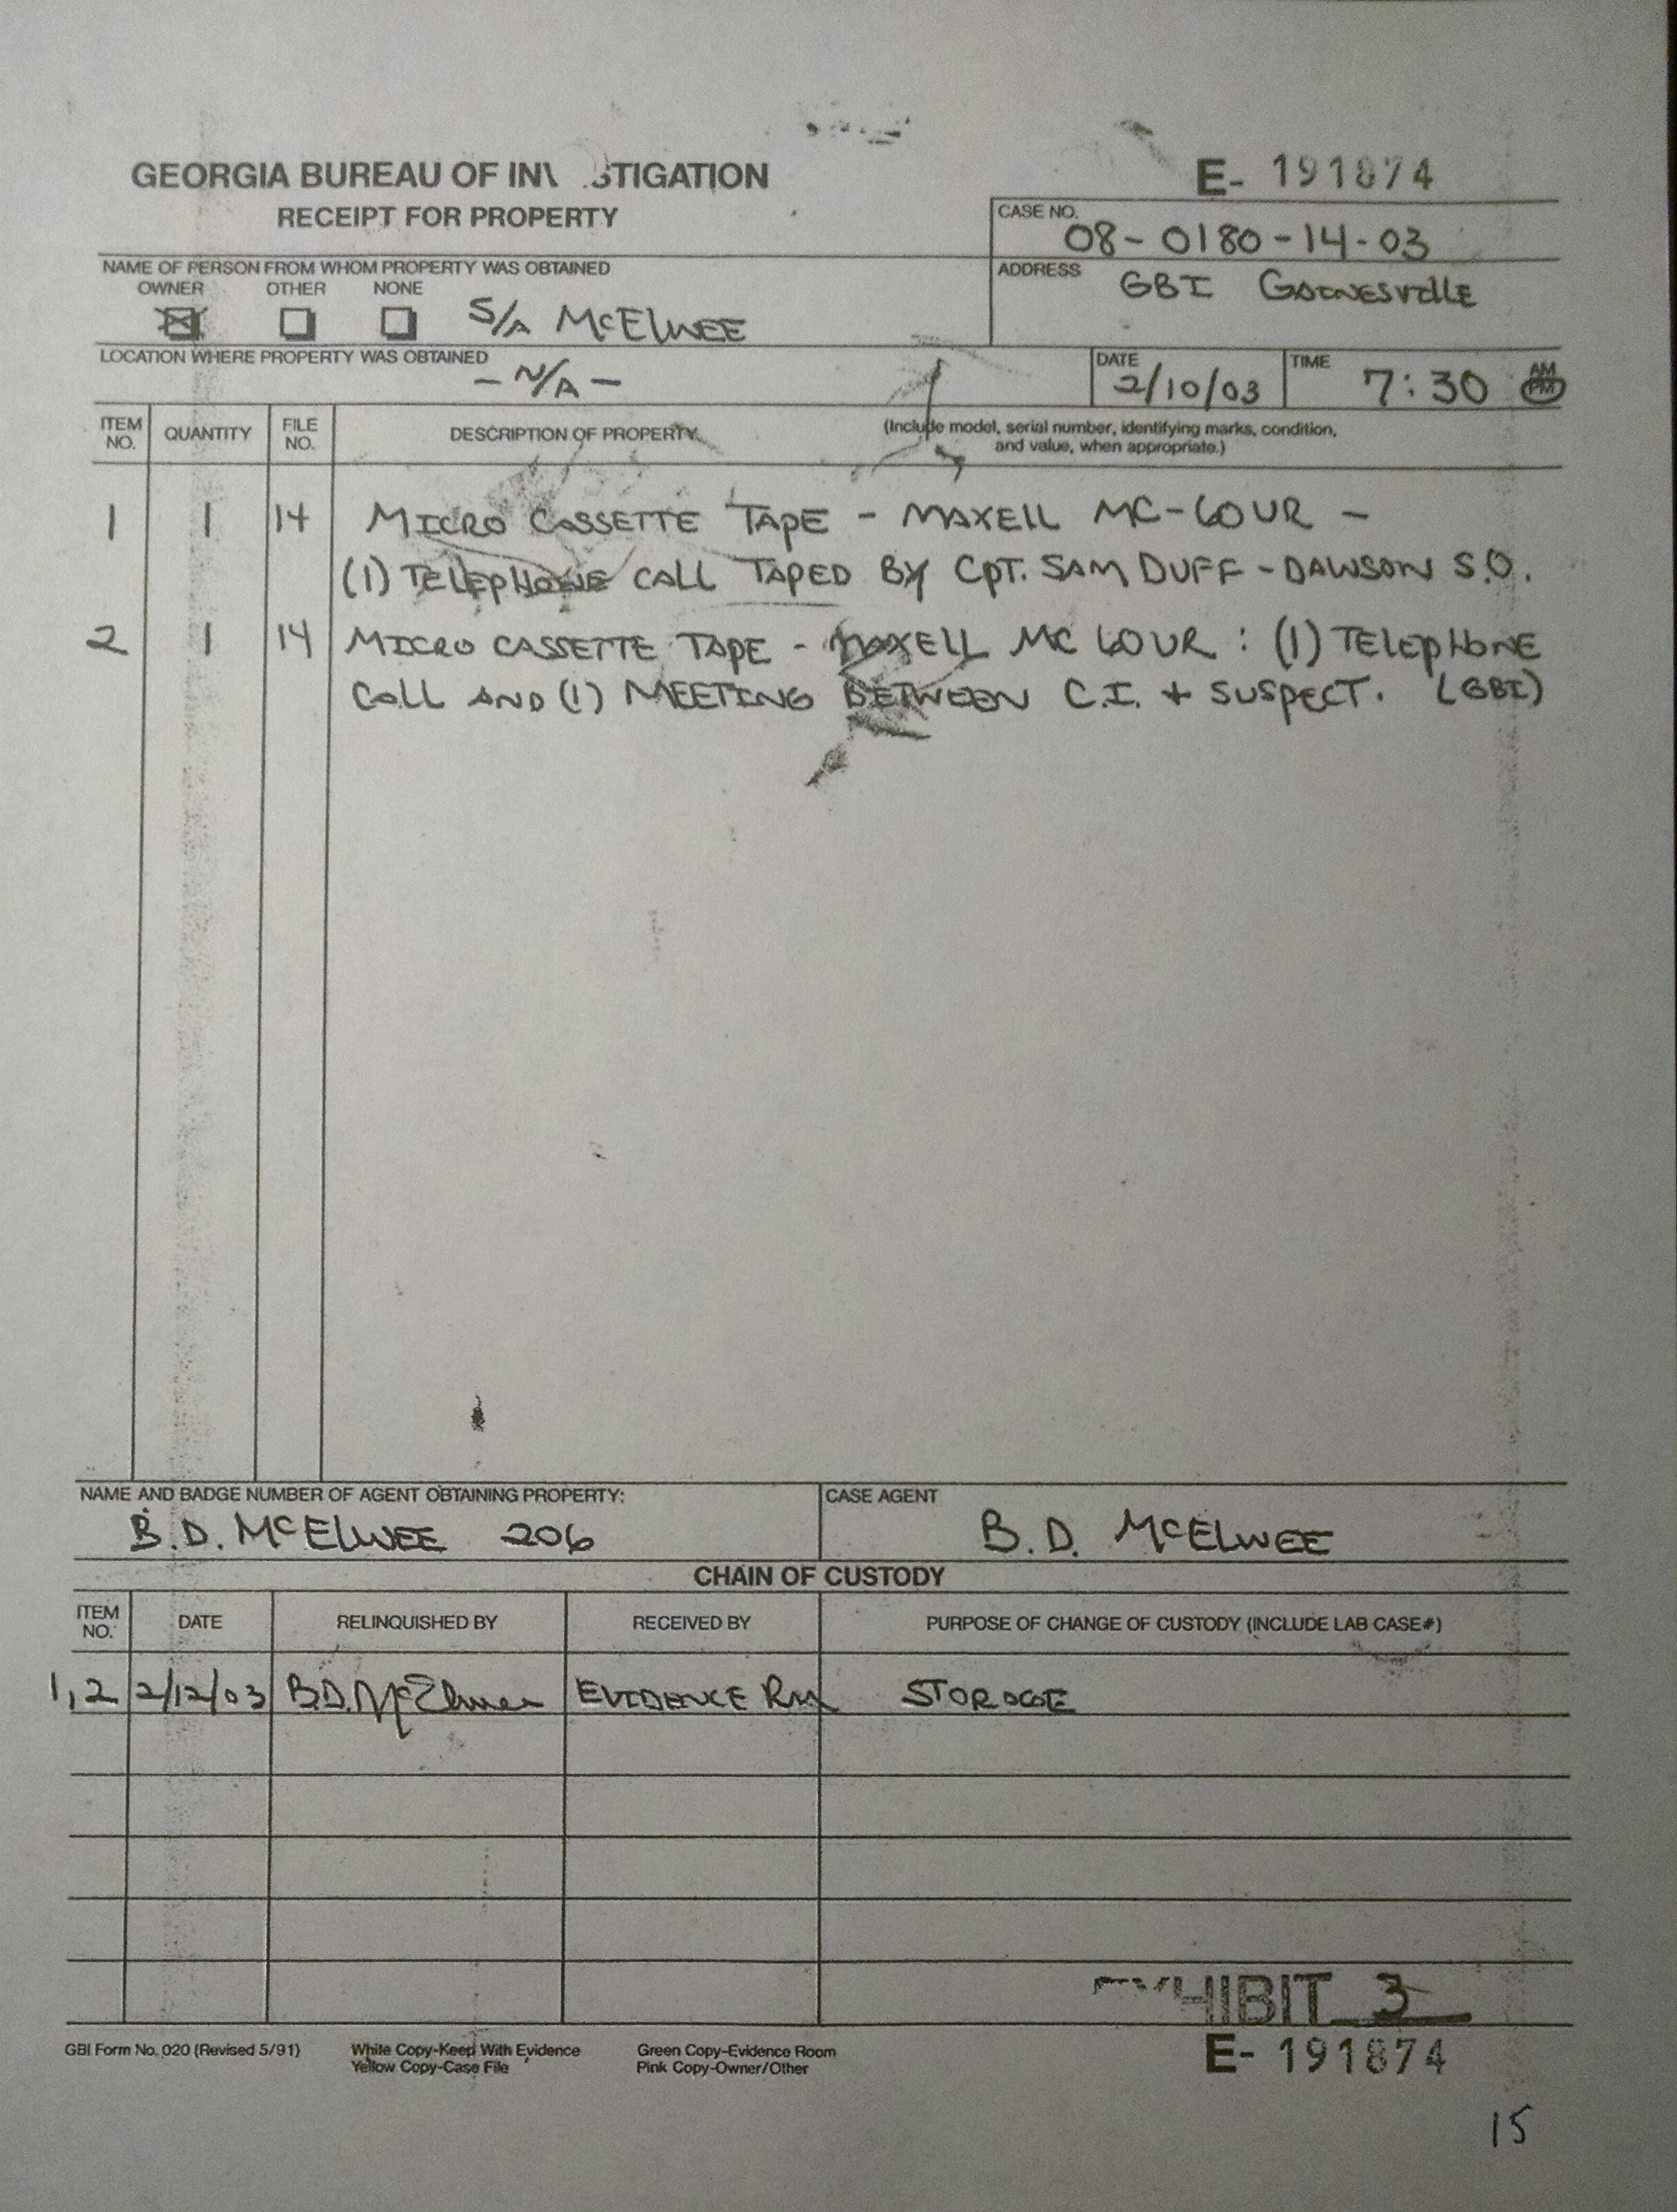 GEORGIA BUREAU OF INV STIGATION
RECEIPT FOR PROPERTY
E- 191874
CASE NO.
08-0180-14-03
NAME OF PERSON FROM WHOM PROPERTY WAS OBTAINED
OWNER OTHER NONE
S/A McELWEE
ADDRESS
GBI GAINESVILLE
LOCATION WHERE PROPERTY WAS OBTAINED
- N/A -
DATE
2/10/03
TIME
7:30 AM PM
ITEM NO. QUANTITY FILE NO. DESCRIPTION OF PROPERTY (Include model, serial number, identifying marks, condition, and value, when appropriate.)
1 1 14 MICRO CASSETTE TAPE - MAXELL MC-60UR -
(1) TELEPHONE CALL TAPED BY CPT. SAM DUFF - DAWSON S.O.
2 1 14 MICRO CASSETTE TAPE - MAXELL MC 60UR : (1) TELEPHONE
CALL AND (1) MEETING BETWEEN C.I. + SUSPECT. (GBI)
NAME AND BADGE NUMBER OF AGENT OBTAINING PROPERTY:
B.D. McELWEE 206
CASE AGENT
B.D. McELWEE
CHAIN OF CUSTODY
ITEM NO. DATE RELINQUISHED BY RECEIVED BY PURPOSE OF CHANGE OF CUSTODY (INCLUDE LAB CASE#)
1,2 2/12/03 B.D. McElwee EVIDENCE RM STORAGE
EXHIBIT 3
GBI Form No. 020 (Revised 5/91)
White Copy-Keep With Evidence
Yellow Copy-Case File
Green Copy-Evidence Room
Pink Copy-Owner/Other
E- 191874
15